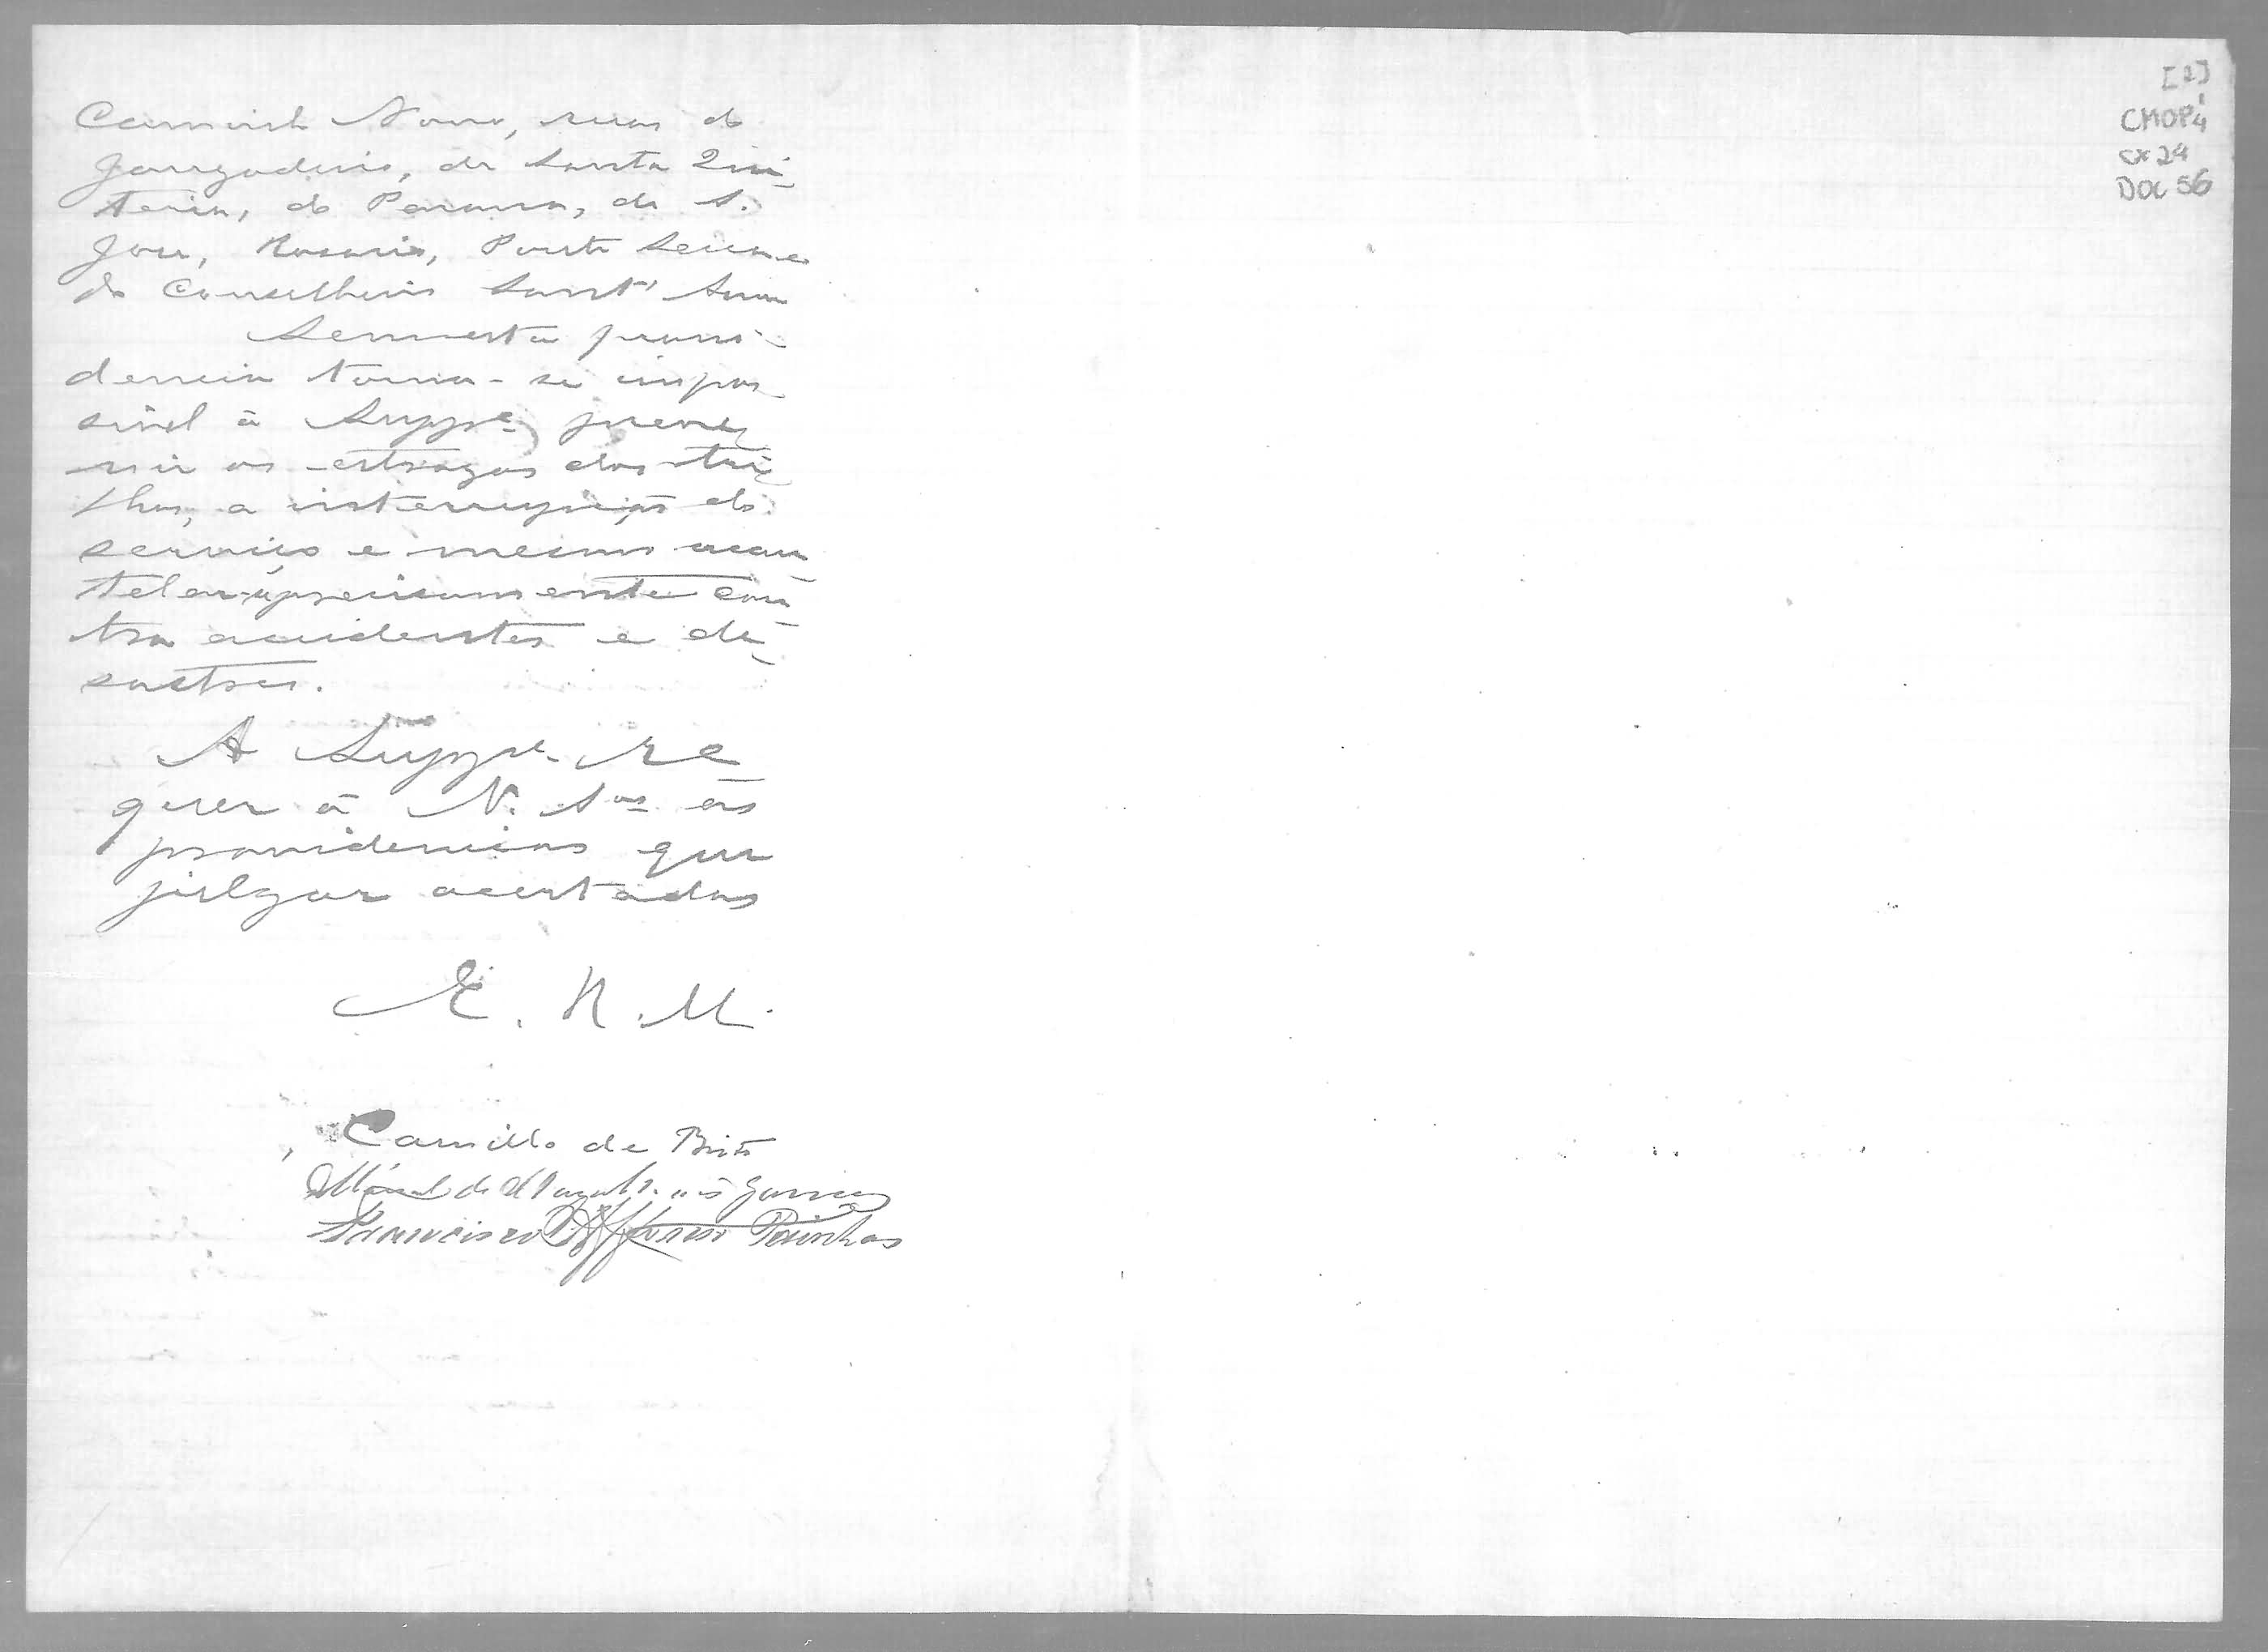 Caminho Novo, ruas do
Gorgodinio, de Santa Qui-
teria, do Paraná, de S.
José, Rosario, Ponte Secca e
do Conselheiro Sant' Anna
Sem esta provi-
dencia torna-se impos-
sivel á Suppe. preve-
nir os estragos dos tri-
lhos, a interrupção do
serviço e mesmo acau-
telar-se precisamente con-
tra accidentes e de-
sastres.
A Suppe. re-
quer á V. Sas as
providencias que
julgar acertadas
E. R. M.
Camillo de Brito
de Magalhães Gomes
Francisco Affonso Painhas
[2]
CMOP4
cx 24
DOC 56